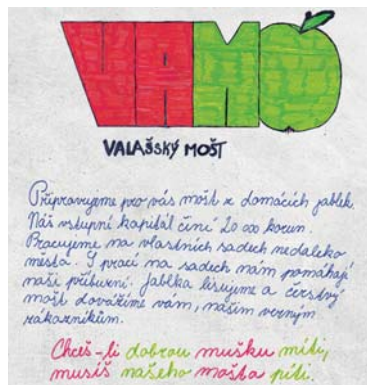 VAMO
VALAŠSKÝ MOŠT
Připravujeme pro vás mošt z domácích jablek.
Náš vstupní kapitál činí 20 000 korun.
Pracujeme na vlastních sadech nedaleko
města. S prací na sadech nám pomáhají
naši příbuzní. Jablka lisujeme a čerstvý
mošt dovážíme vám, našim verným
zákazníkům.
Chceš-li dobrou mušku míti,
musíš našeho mošta píti.